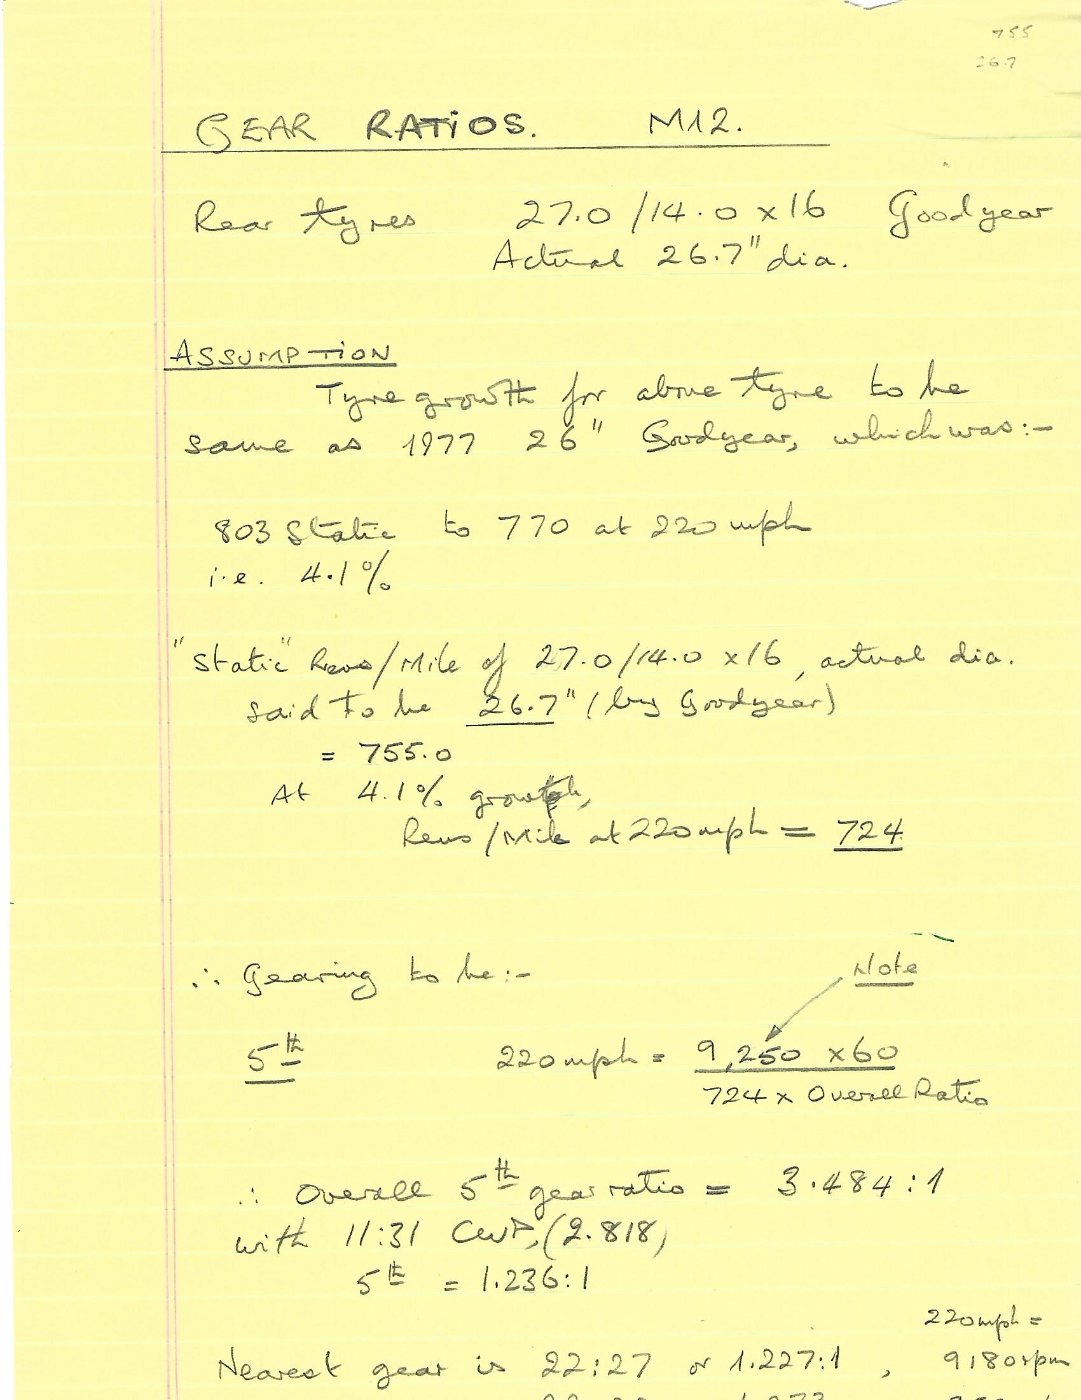 755
26.7
GEAR RATIOS. M12.
Rear tyres 27.0/14.0 x 16 Goodyear
Actual 26.7" dia.
ASSUMPTION
Tyre growth for above tyre to be
same as 1977 26" Goodyear, which was:-
803 Static to 770 at 220 mph
i.e. 4.1%
"Static" Revs/Mile of 27.0/14.0 x 16, actual dia.
said to be 26.7" (by Goodyear)
= 755.0
At 4.1% growth,
Revs/Mile at 220 mph = 724
∴ Gearing to be:-
Note
5th 220 mph = 9,250 x 60
724 x Overall Ratio
∴ Overall 5th gear ratio = 3.484:1
with 11:31 CWP, (2.818)
5th = 1.236:1
220 mph =
Nearest gear is 22:27 or 1.227:1, 9180 rpm